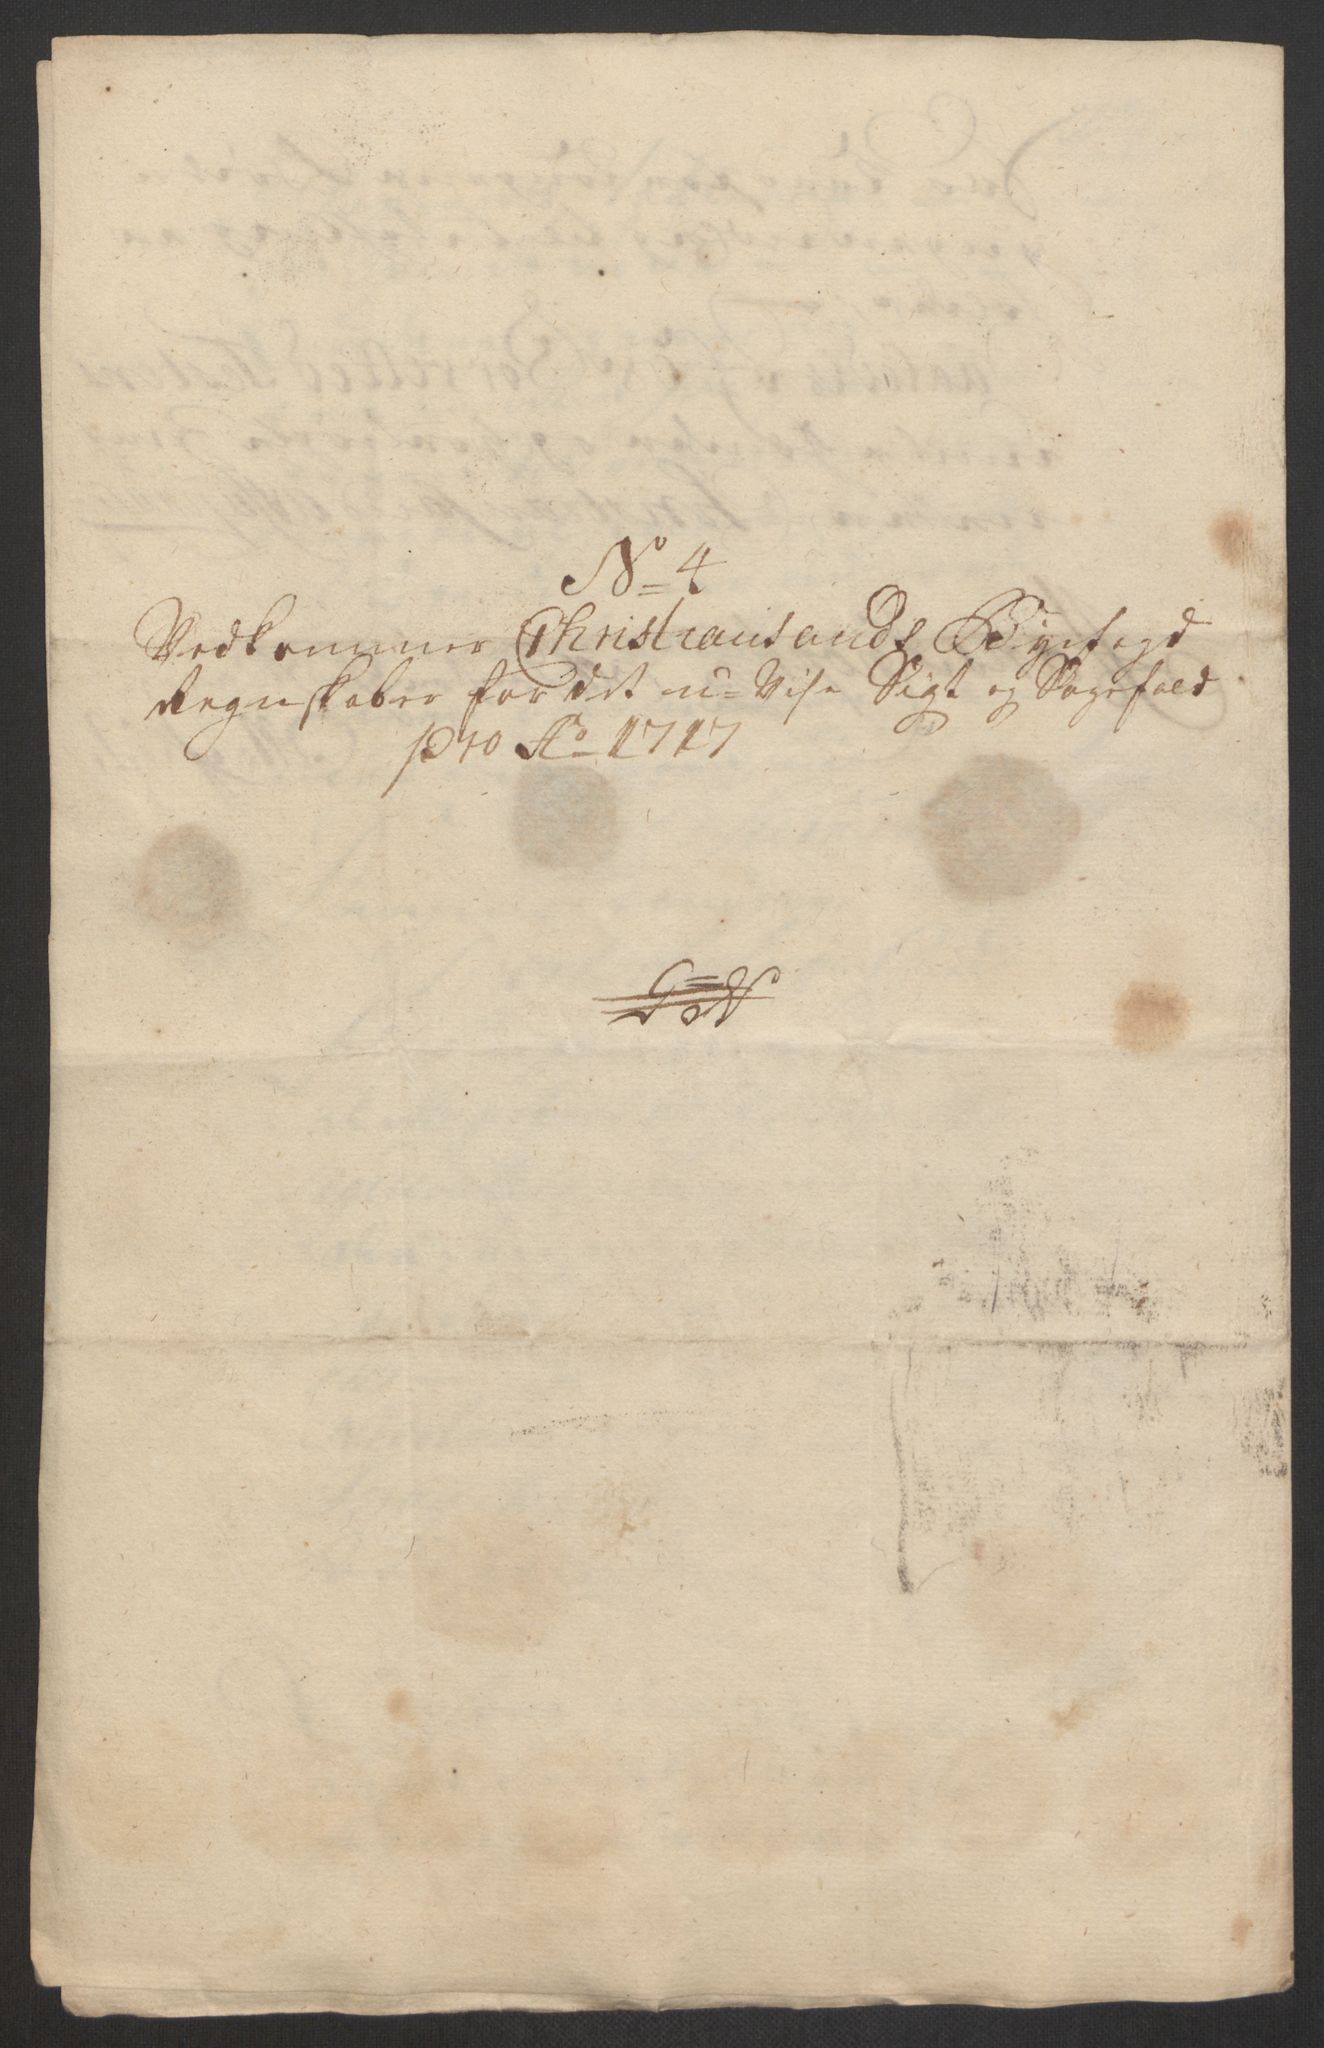 No 4
Vedkommer Christiansands Byefogd
Regnskaber for det u-Vise Sigt og Sagefald
pro Ao 1717